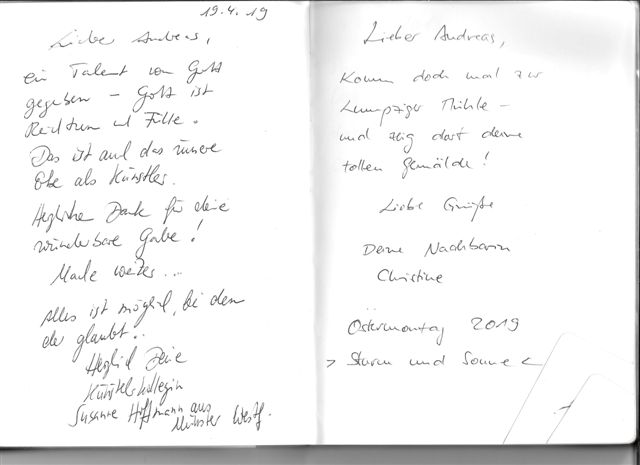 19.4.19
Lieber Andreas,
ein Talent von Gott
gegeben – Gott ist
Reichtum und Fülle.
Das ist auch das innere
Erbe als Künstler.
Herzlichen Dank für deine
wunderbare Gabe!
Mache weiter...
Alles ist möglich, bei dem
der glaubt..
Herzlich Deine
Künstlerkollegin
Susanne Hoffmann aus
Münster Westf.
Lieber Andreas,
Komm doch mal zur
Mühle –
und zeig dort deine
tollen Gemälde!
Liebe Grüße
Deine Nachbarin
Christine
Ostermontag 2019
> Sturm und Sonne <